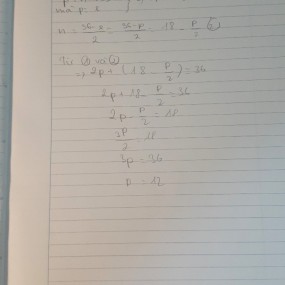 mà p =
n = \frac{36-p}{2} = \frac{36-p}{2} = 18 - \frac{p}{2} (2)
Từ ① và ②
=> 2p + (18 - \frac{p}{2}) = 36
2p + 18 - \frac{p}{2} = 36
2p - \frac{p}{2} = 18
\frac{3p}{2} = 18
3p = 36
p = 12